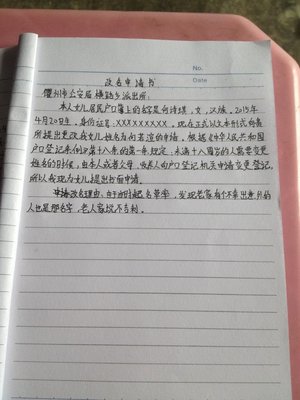 No.
Date
改名申请书
衢州市公安局横路乡派出所:
本人女儿居民户口簿上的名字是向诗琪,女,汉族。2015年
4月20日生,身份证号:XXXXXXXXXX。现在正式以文本形式向贵
所提出更改我女儿姓名为向若渲的申请,根据《中华人民共和国
户口登记条例》第十八条的第一条规定:未满十八周岁的人需要变更
姓名的时候,由本人或者父母、收养人向户口登记机关申请变更登记,
所以我现为女儿提出书面申请。
申请改名理由:由于当时起名草率,发现老家有个不幸出意外的
人也是那名字,老人家说不吉利。